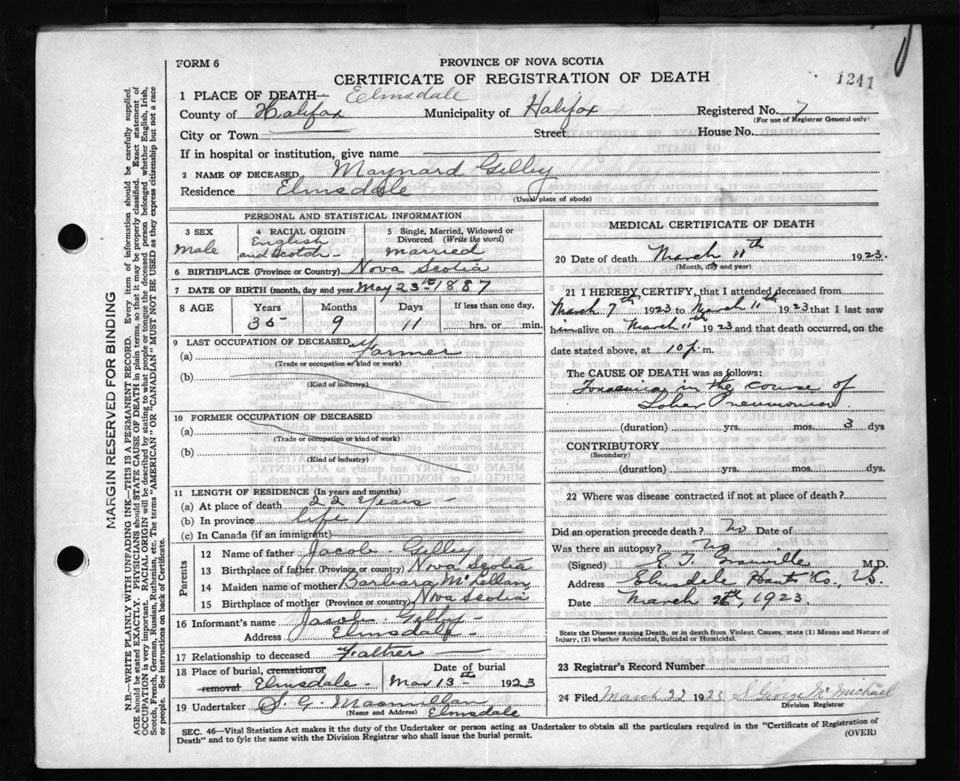 FORM 6
PROVINCE OF NOVA SCOTIA
CERTIFICATE OF REGISTRATION OF DEATH
1241
1 PLACE OF DEATH— Elmsdale
County of Halifax Municipality of Halifax Registered No. 7
(For use of Registrar General only)
City or Town Street House No.
If in hospital or institution, give name
2 NAME OF DECEASED Maynard Gilby
Residence Elmsdale
(Usual place of abode)
PERSONAL AND STATISTICAL INFORMATION
3 SEX 4 RACIAL ORIGIN 5 Single, Married, Widowed or Divorced (Write the word)
Male English and Scotch married
6 BIRTHPLACE (Province or Country) Nova Scotia
7 DATE OF BIRTH (month, day and year) May 23rd 1887
8 AGE Years Months Days If less than one day,
35 9 11 hrs. or min.
9 LAST OCCUPATION OF DECEASED
(a) Farmer
(Trade or occupation or kind of work)
(b)
(Kind of industry)
10 FORMER OCCUPATION OF DECEASED
(a)
(Trade or occupation or kind of work)
(b)
(Kind of industry)
11 LENGTH OF RESIDENCE (In years and months)
(a) At place of death 22 years
(b) In province life
(c) In Canada (if an immigrant)
Parents
12 Name of father Jacob Gilby
13 Birthplace of father (Province or country) Nova Scotia
14 Maiden name of mother Barbara McLellan
15 Birthplace of mother (Province or country) Nova Scotia
16 Informant's name Jacob Gilby
Address Elmsdale
17 Relationship to deceased Father
18 Place of burial, cremation or removal Elmsdale Date of burial Mar 13th 1923
19 Undertaker S. G.
(Name and Address) Elmsdale
MEDICAL CERTIFICATE OF DEATH
20 Date of death March 11th 1923.
(Month, day and year)
21 I HEREBY CERTIFY, that I attended deceased from
March 7th 1923 to March 11th 1923 that I last saw
him alive on March 11th 1923 and that death occurred, on the
date stated above, at 10 p. m.
The CAUSE OF DEATH was as follows:
Toxaemia in the course of
Lobar Pneumonia
(duration) yrs. mos. 3 dys
CONTRIBUTORY
(Secondary)
(duration) yrs. mos. dys.
22 Where was disease contracted if not at place of death?
Did an operation precede death? No Date of
Was there an autopsy? No
(Signed) M.D.
Address Elmsdale Hants Co., N.S.
Date March 1923
State the Disease causing Death, or in death from Violent Causes, state (1) Means and Nature of
Injury, (2) whether Accidental, Suicidal or Homicidal.
23 Registrar's Record Number
24 Filed March 22 1923 S. George McMichael
Division Registrar
SEC. 46—Vital Statistics Act makes it the duty of the Undertaker or person acting as Undertaker to obtain all the particulars required in the "Certificate of Registration of
Death" and to fyle the same with the Division Registrar who shall issue the burial permit.
(OVER)
MARGIN RESERVED FOR BINDING
N.B.—WRITE PLAINLY WITH UNFADING INK—THIS IS A PERMANENT RECORD. Every item of information should be carefully supplied.
AGE should be stated EXACTLY. PHYSICIANS should STATE CAUSE OF DEATH in plain terms, so that it may be properly classified. Exact statement of
OCCUPATION is very important. RACIAL ORIGIN will be described by stating to what people or tongue the deceased person belonged whether English, Irish,
Scotch, French, German, Russian, Ruthenian, etc. The terms "AMERICAN" OR "CANADIAN" MUST NOT BE USED as they express citizenship but not a race
or people. See instructions on back of Certificate.